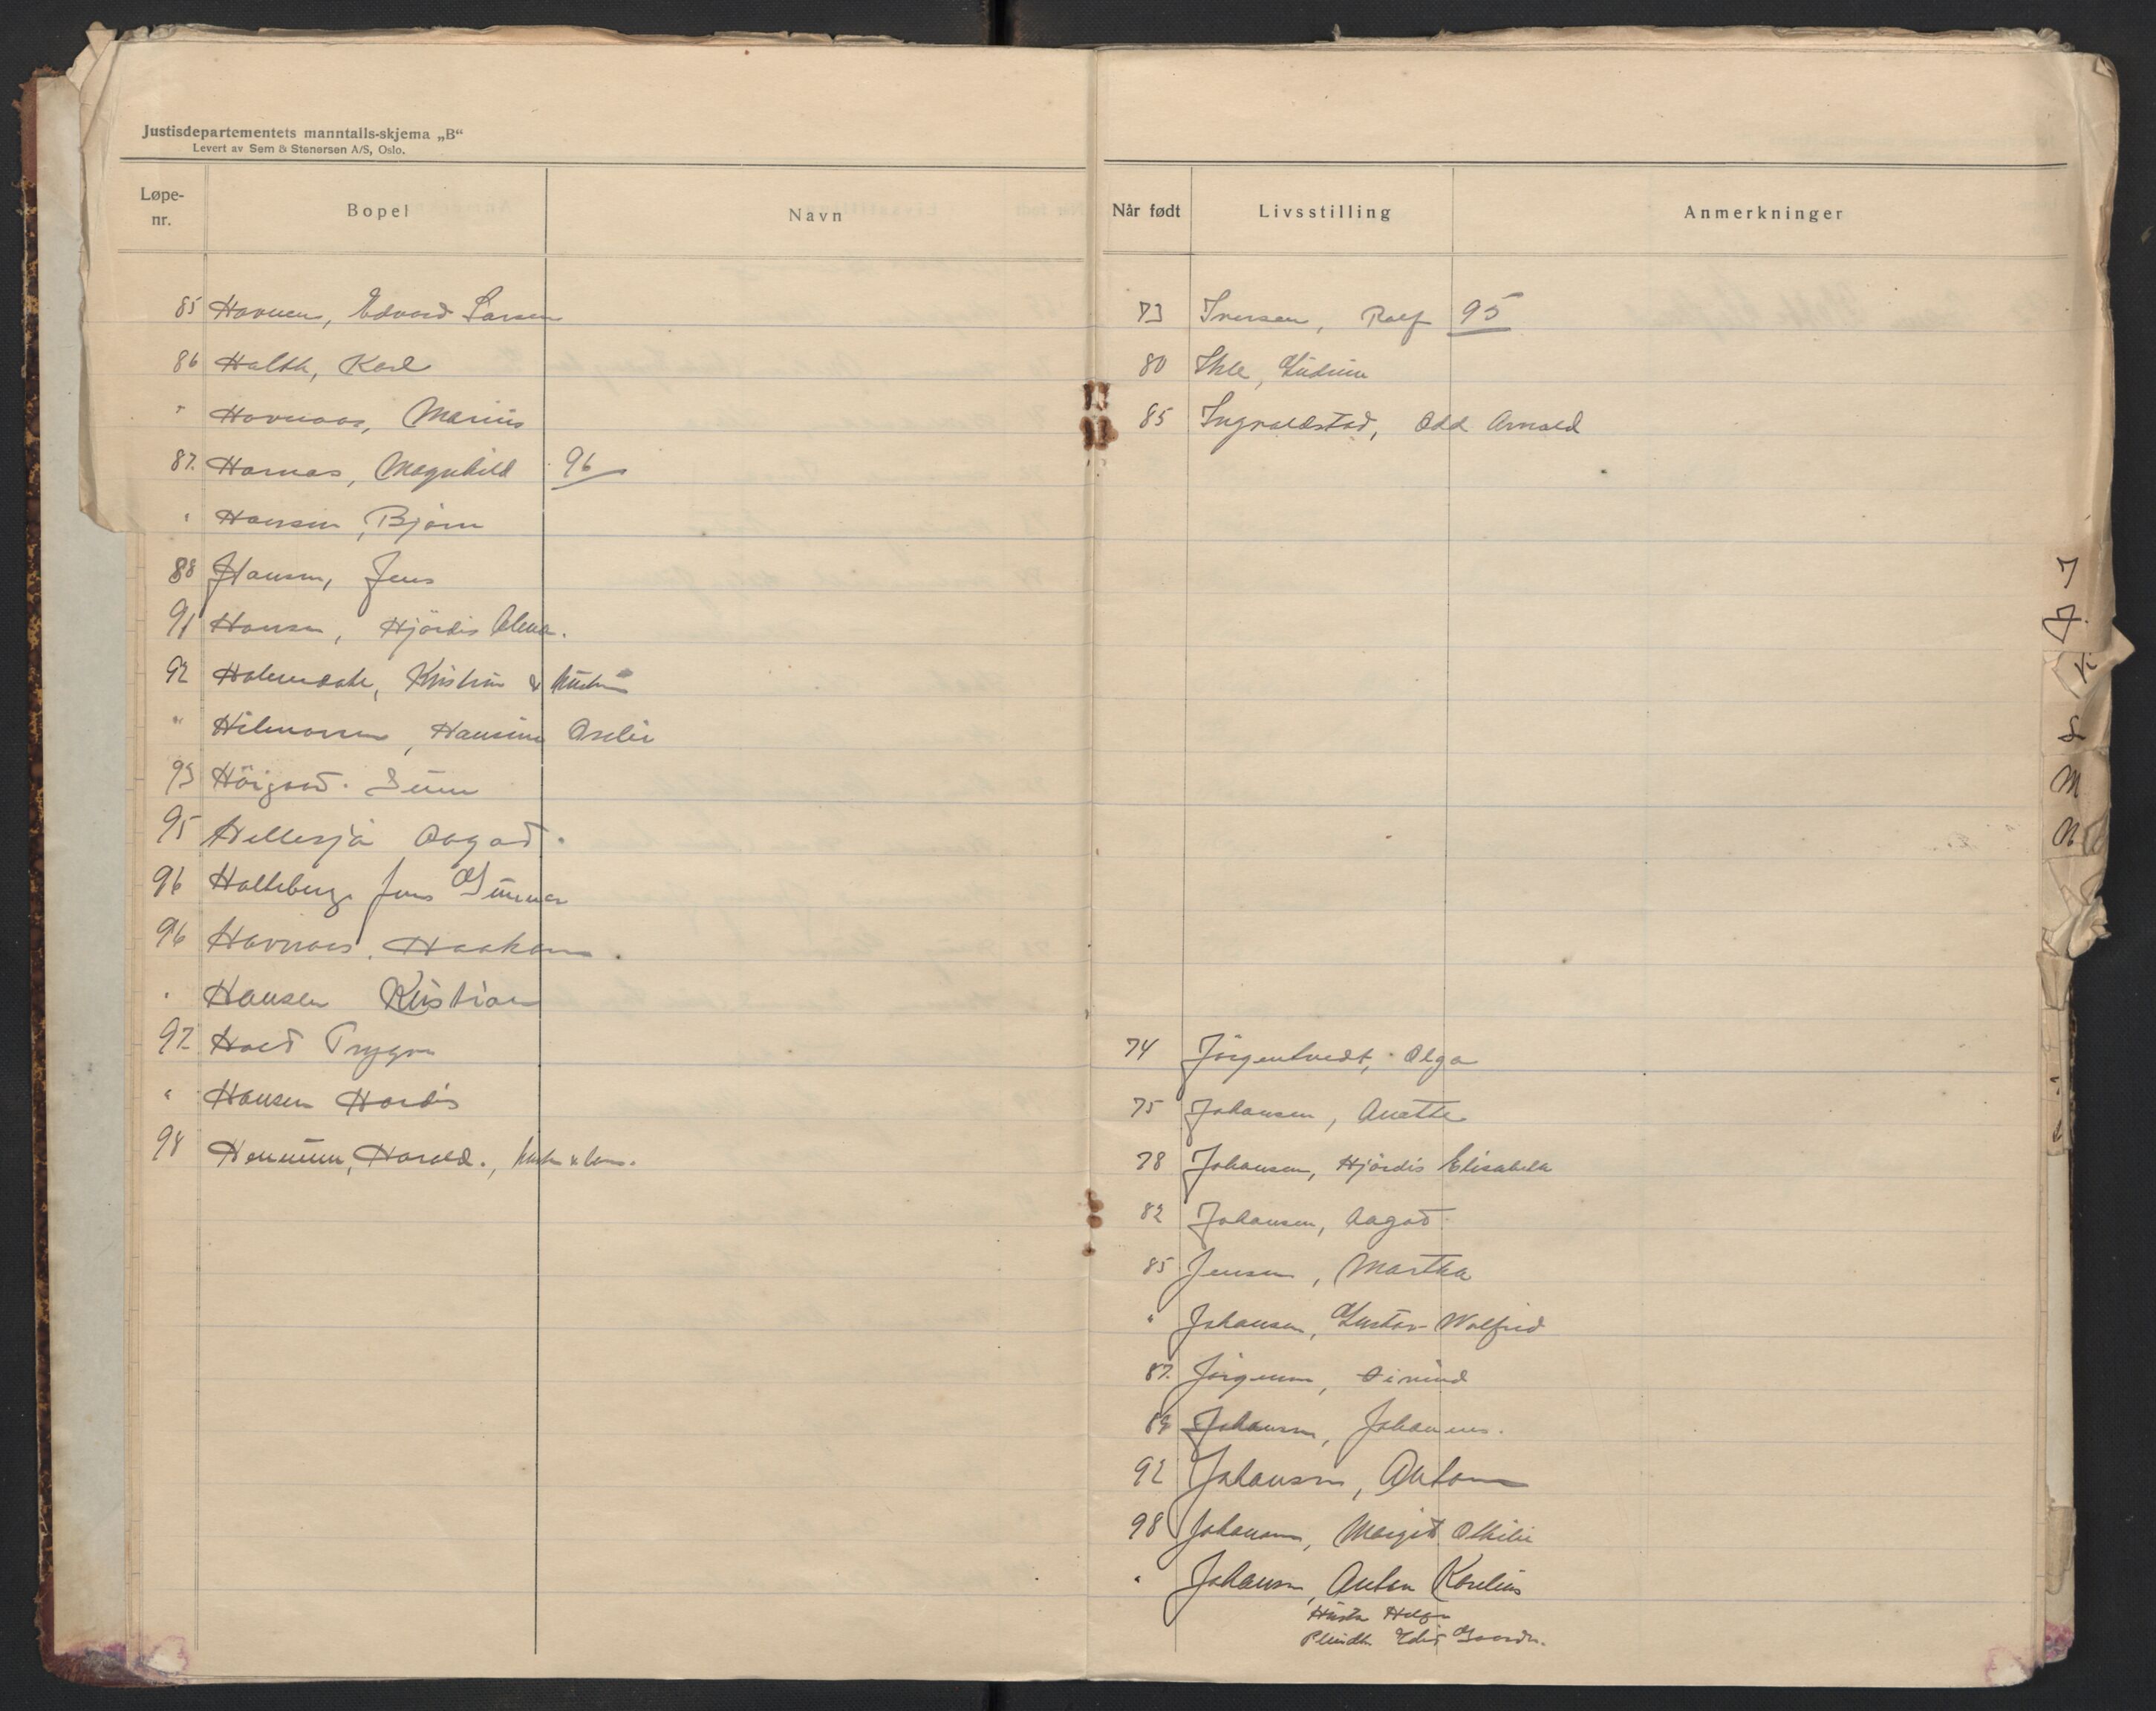 Justisdepartementets manntalls-skjema „B“
Levert av Sem & Stenersen A/S, Oslo.
Løpe-nr. Bopel Navn
85 Havnen, Edvard Larsen
86 Halth, Karl
" Havnaas, Marius
87. Harnas, Magnhild 96
" Hansen, Bjørn
88 Hansen, Jens
91 Hansen, Hjördis Alena.
92 Kristian &
" Hansine
93
95 Hellesjå Aagot.
96 Holteberg Jens Gunnar
96 Havnaas, Haakon.
" Hansen Kristian
97 Holt Trygve
" Hansen Hardis
98 Harald.,
Når født Livsstilling Anmerkninger
73 Iversen, Rolf 95
80 Ihle, Gudrun
85 Ingvaldstad, Odd Arnold
74 Jörgentvedt, Olga
75 Johansen, Anette
78 Johansen, Hjördis Elisabeth
82 Johansen, Aagot
85 Jensen, Martha
" Johansen, Gustav Walfrid
87. Jörgensen, Eivind
89 Johansen, Johannes.
92 Johansen, Anton
98 Johansen, Margit Othilie
" Johansen, Anton Karelius
Hustru Helga
Edit
J
K
L
M
N